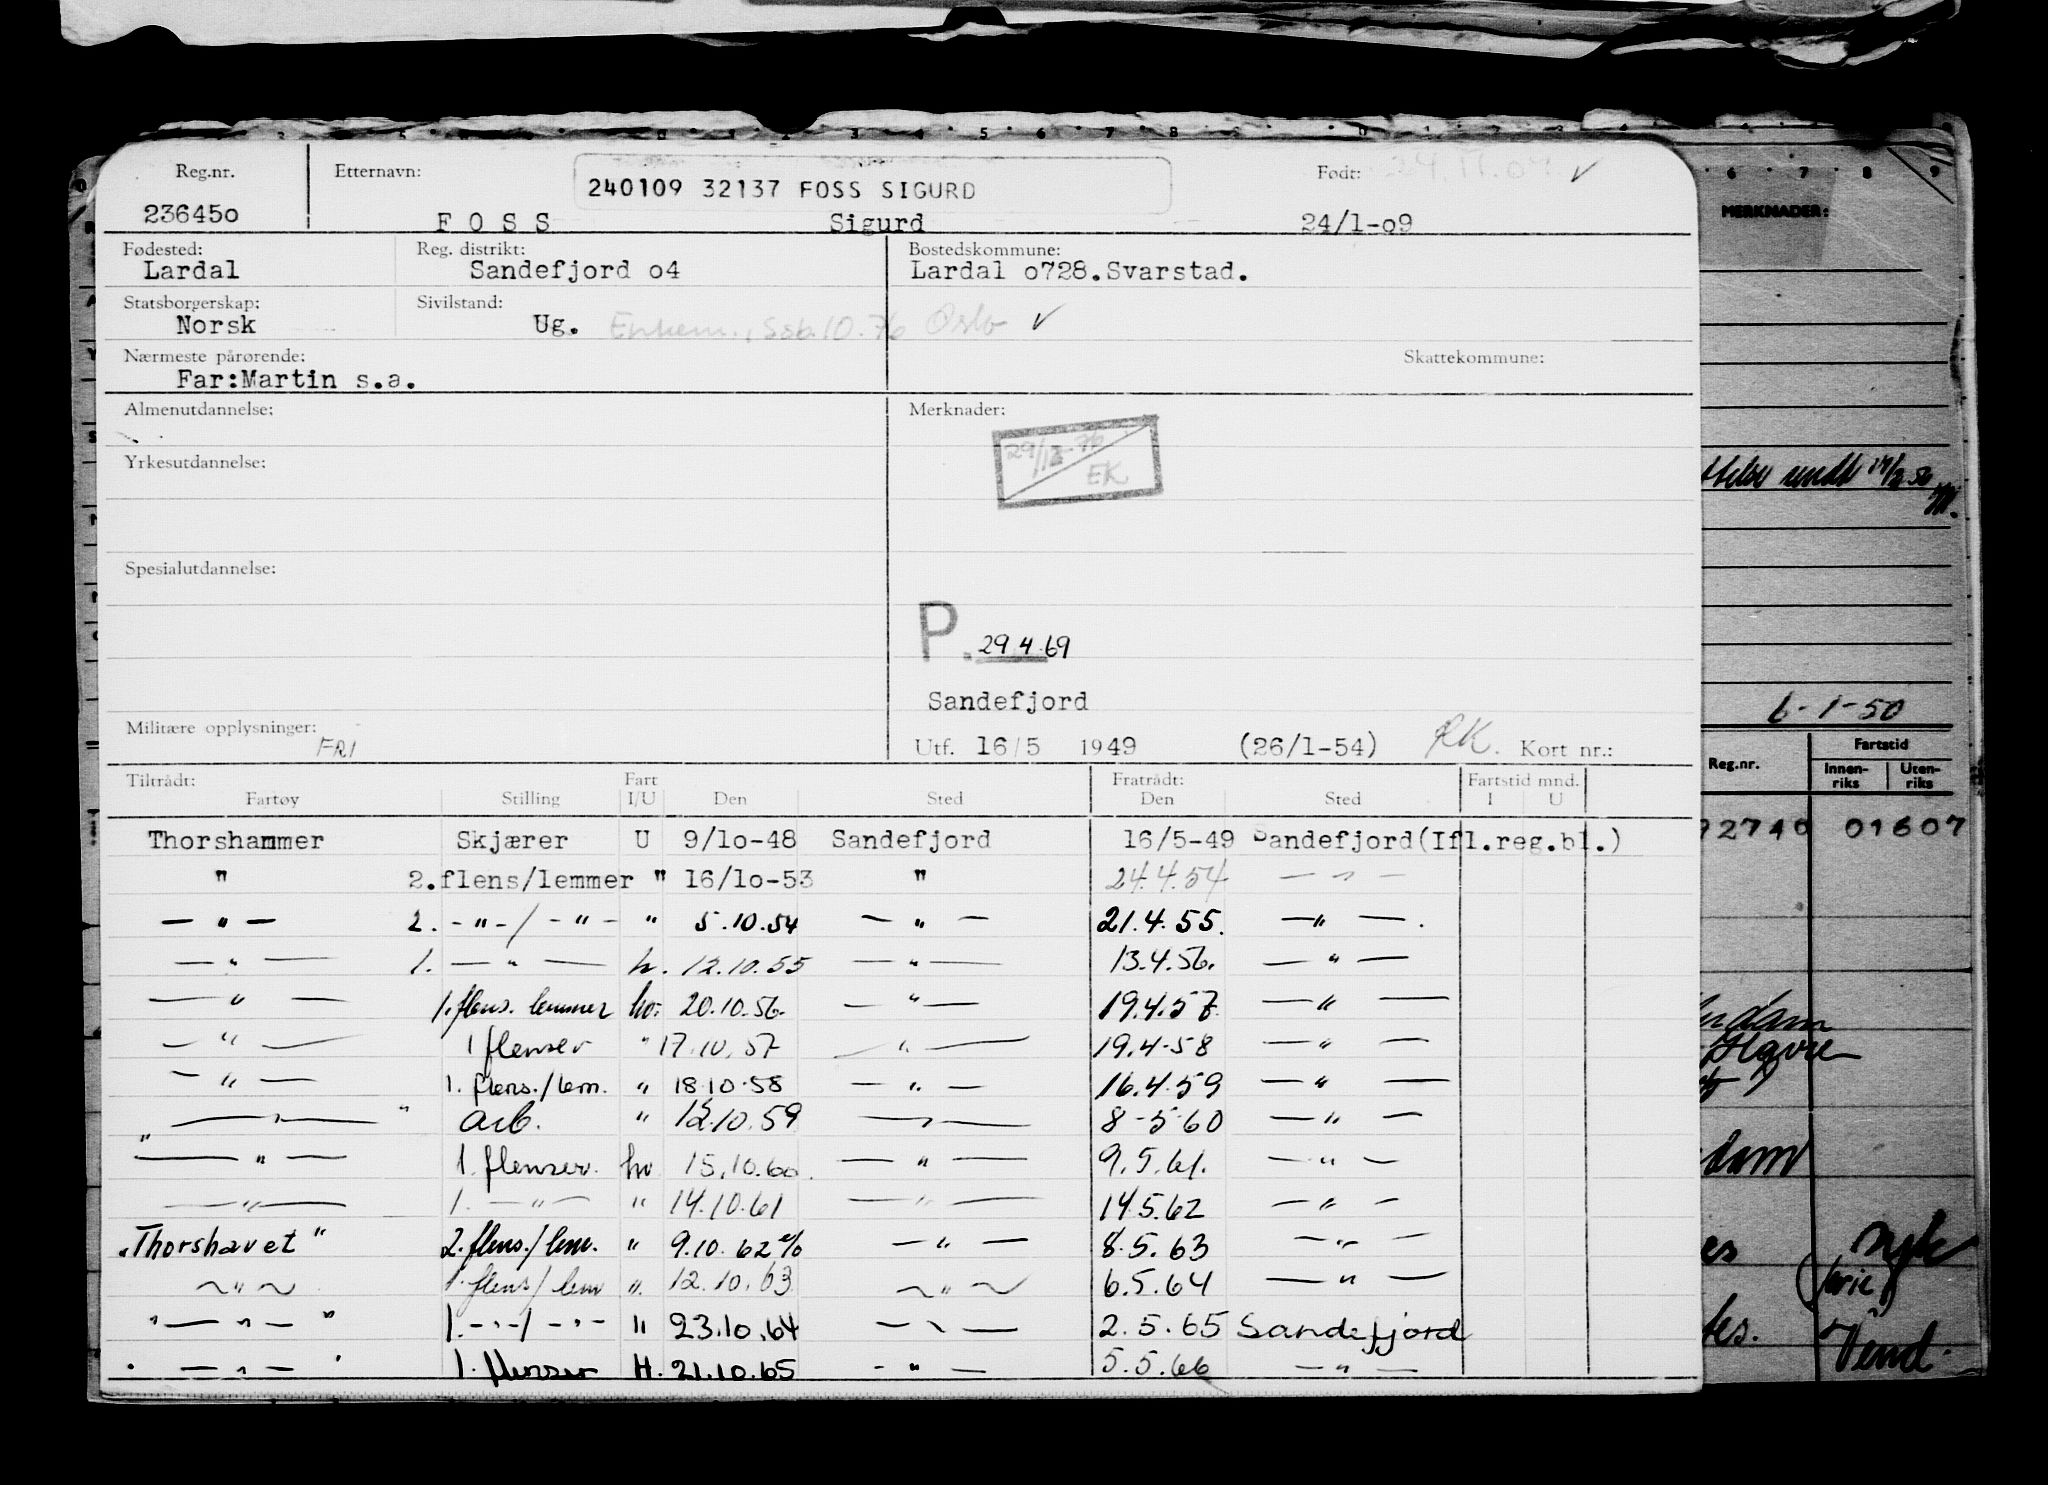 Reg.nr. Etternavn: 240109 32137 FOSS SIGURD Født:
236450 F O S S Sigurd 24/1-o9
Fødested: Reg. distrikt: Bostedskommune:
Lardal Sandefjord o4 Lardal o728.Svarstad.
Statsborgerskap: Sivilstand:
Norsk Ug. Enkem., 10.76 Oslo ✓
Nærmeste pårørende: Skattekommune:
Far:Martin s.a.
Almenutdannelse: Merknader:
29/12-76
EK
Yrkesutdannelse:
Spesialutdannelse:
P. 29.4.69
Sandefjord
Militære opplysninger: FRI
Utf. 16/5 1949 (26/1-54) RK. Kort nr.:
Tiltrådt: Fart Fratrådt: Fartstid mnd.
Fartøy Stilling I/U Den Sted Den Sted I U
Thorshammer Skjærer U 9/1o-48 Sandefjord 16/5-49 Sandefjord(Ifl.reg.bl.)
" 2.flens/lemmer " 16/1o-53 " 24.4.54 — " —
— " — 2. -"-/-"- " 5.10.54 — " — 21.4.55. — " —.
— " — 1. — " — h. 12.10.55 — " — 13.4.56. — " —
— " — 1.flens. lemmer hv. 20.10.56. — " — 19.4.57. — " —
— " — 1 flenser " 17.10.57 — " — 19.4-58 — " —
— " — 1. flens./lem. " 18.10.58 — " — 16.4.59 — " —
" — " — " arb. " 12.10.59 — " — 8-5-60 — " —
— " — 1. flenser. hv. 15.10.60. — " — 9.5.61. — " —
— " — 1. — " — " 14.10.61 — " — 14.5.62 — " —
"Thorshavet" 2.flens./lem. " 9.10.62 — " — 8.5.63 — " —
~ " ~ 1.flens/lem " 12.10.63 ~ " ~ 6.5.64 — " —
" — " — " 1.-"-/-"- " 23.10.64 — " — 2.5.65 Sandefjord
" — " — " 1. flenser H. 21.10.65 - " — 5.5.66 — " —
MERKNADER:
sendt
6-1-50
Reg.nr. Fartstid
Innen-riks Uten-riks
92740 01607
Havre
dam